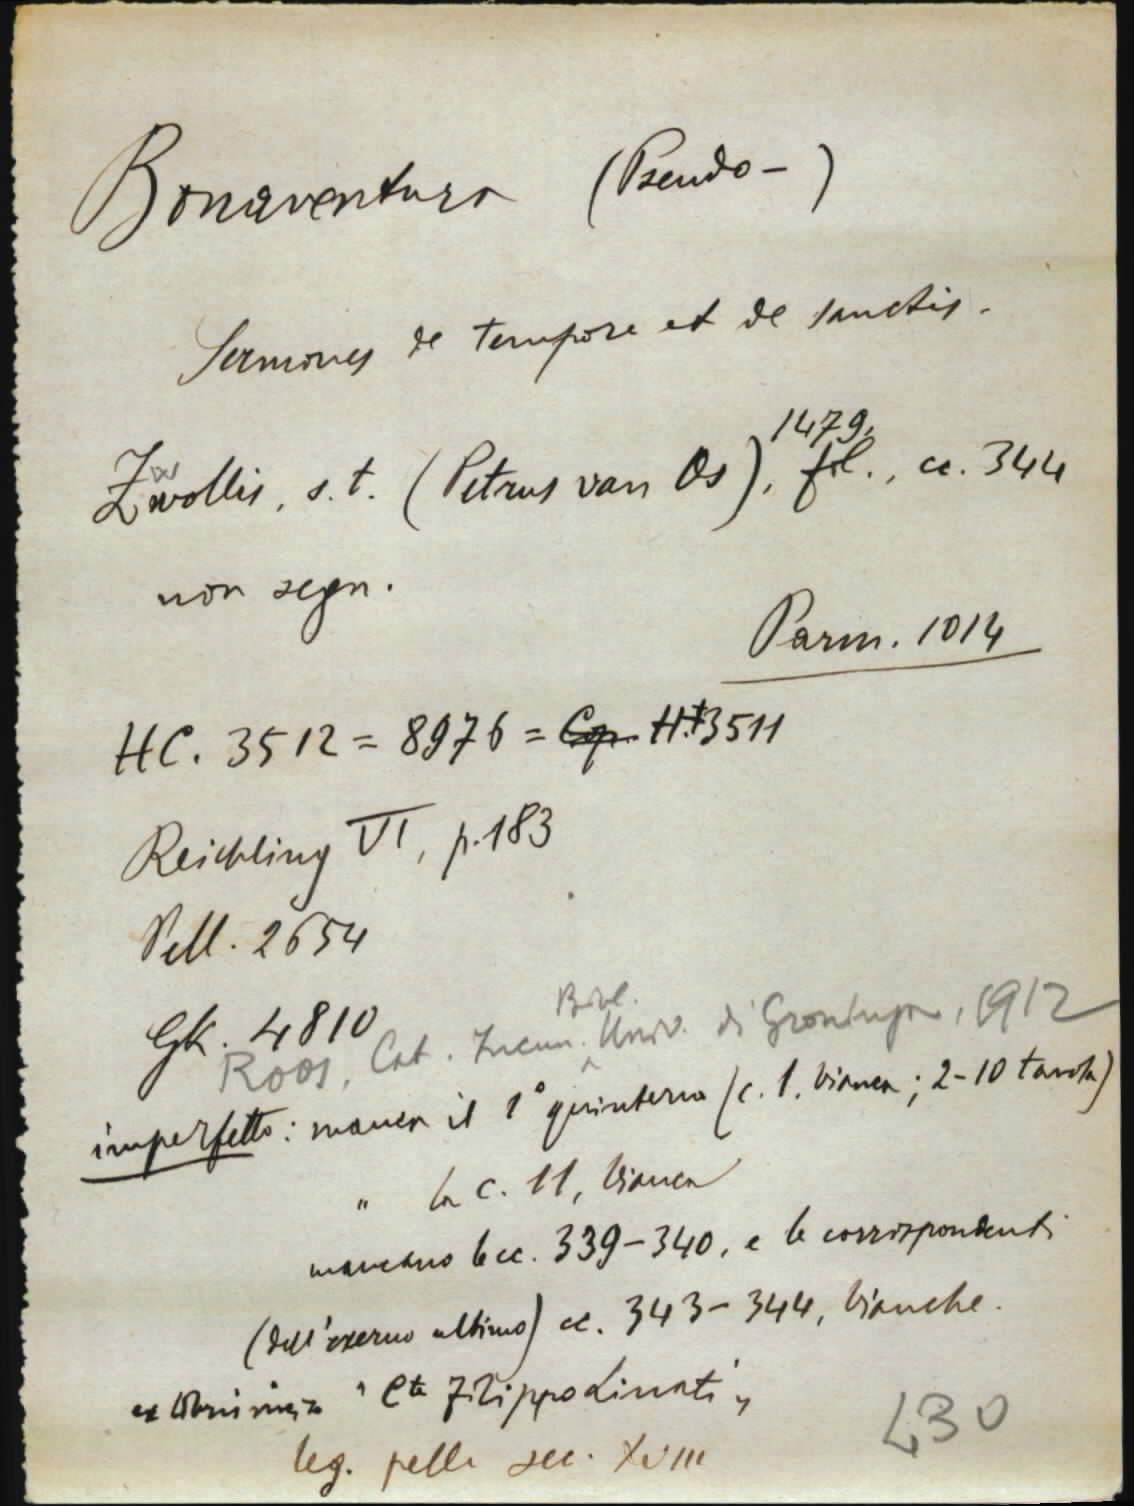 Bonaventura (Pseudo-)
Sermones de tempore et de sanctis.
Zwollis, s.t. (Petrus van Os), 1479, fol., cc. 344
non segn.
Parm. 1014
HC. 3512 = 8976 = Cop. H. 3511
Reichling VI, p. 183
Pell. 2654
GK. 4810
Roos, Cat. Incun. Bibl. Univ. di Groninga, 1912
imperfetto: manca il 1° quinterno (c. 1. bianca; 2-10 tavola)
" la c. 11, bianca
mancano le cc. 339-340, e le corrispondenti
(dell'exerno ultimo) cc. 343-344, bianche.
ex libris "Cte Filippo Linati"
leg. pelle sec. XVIII
430